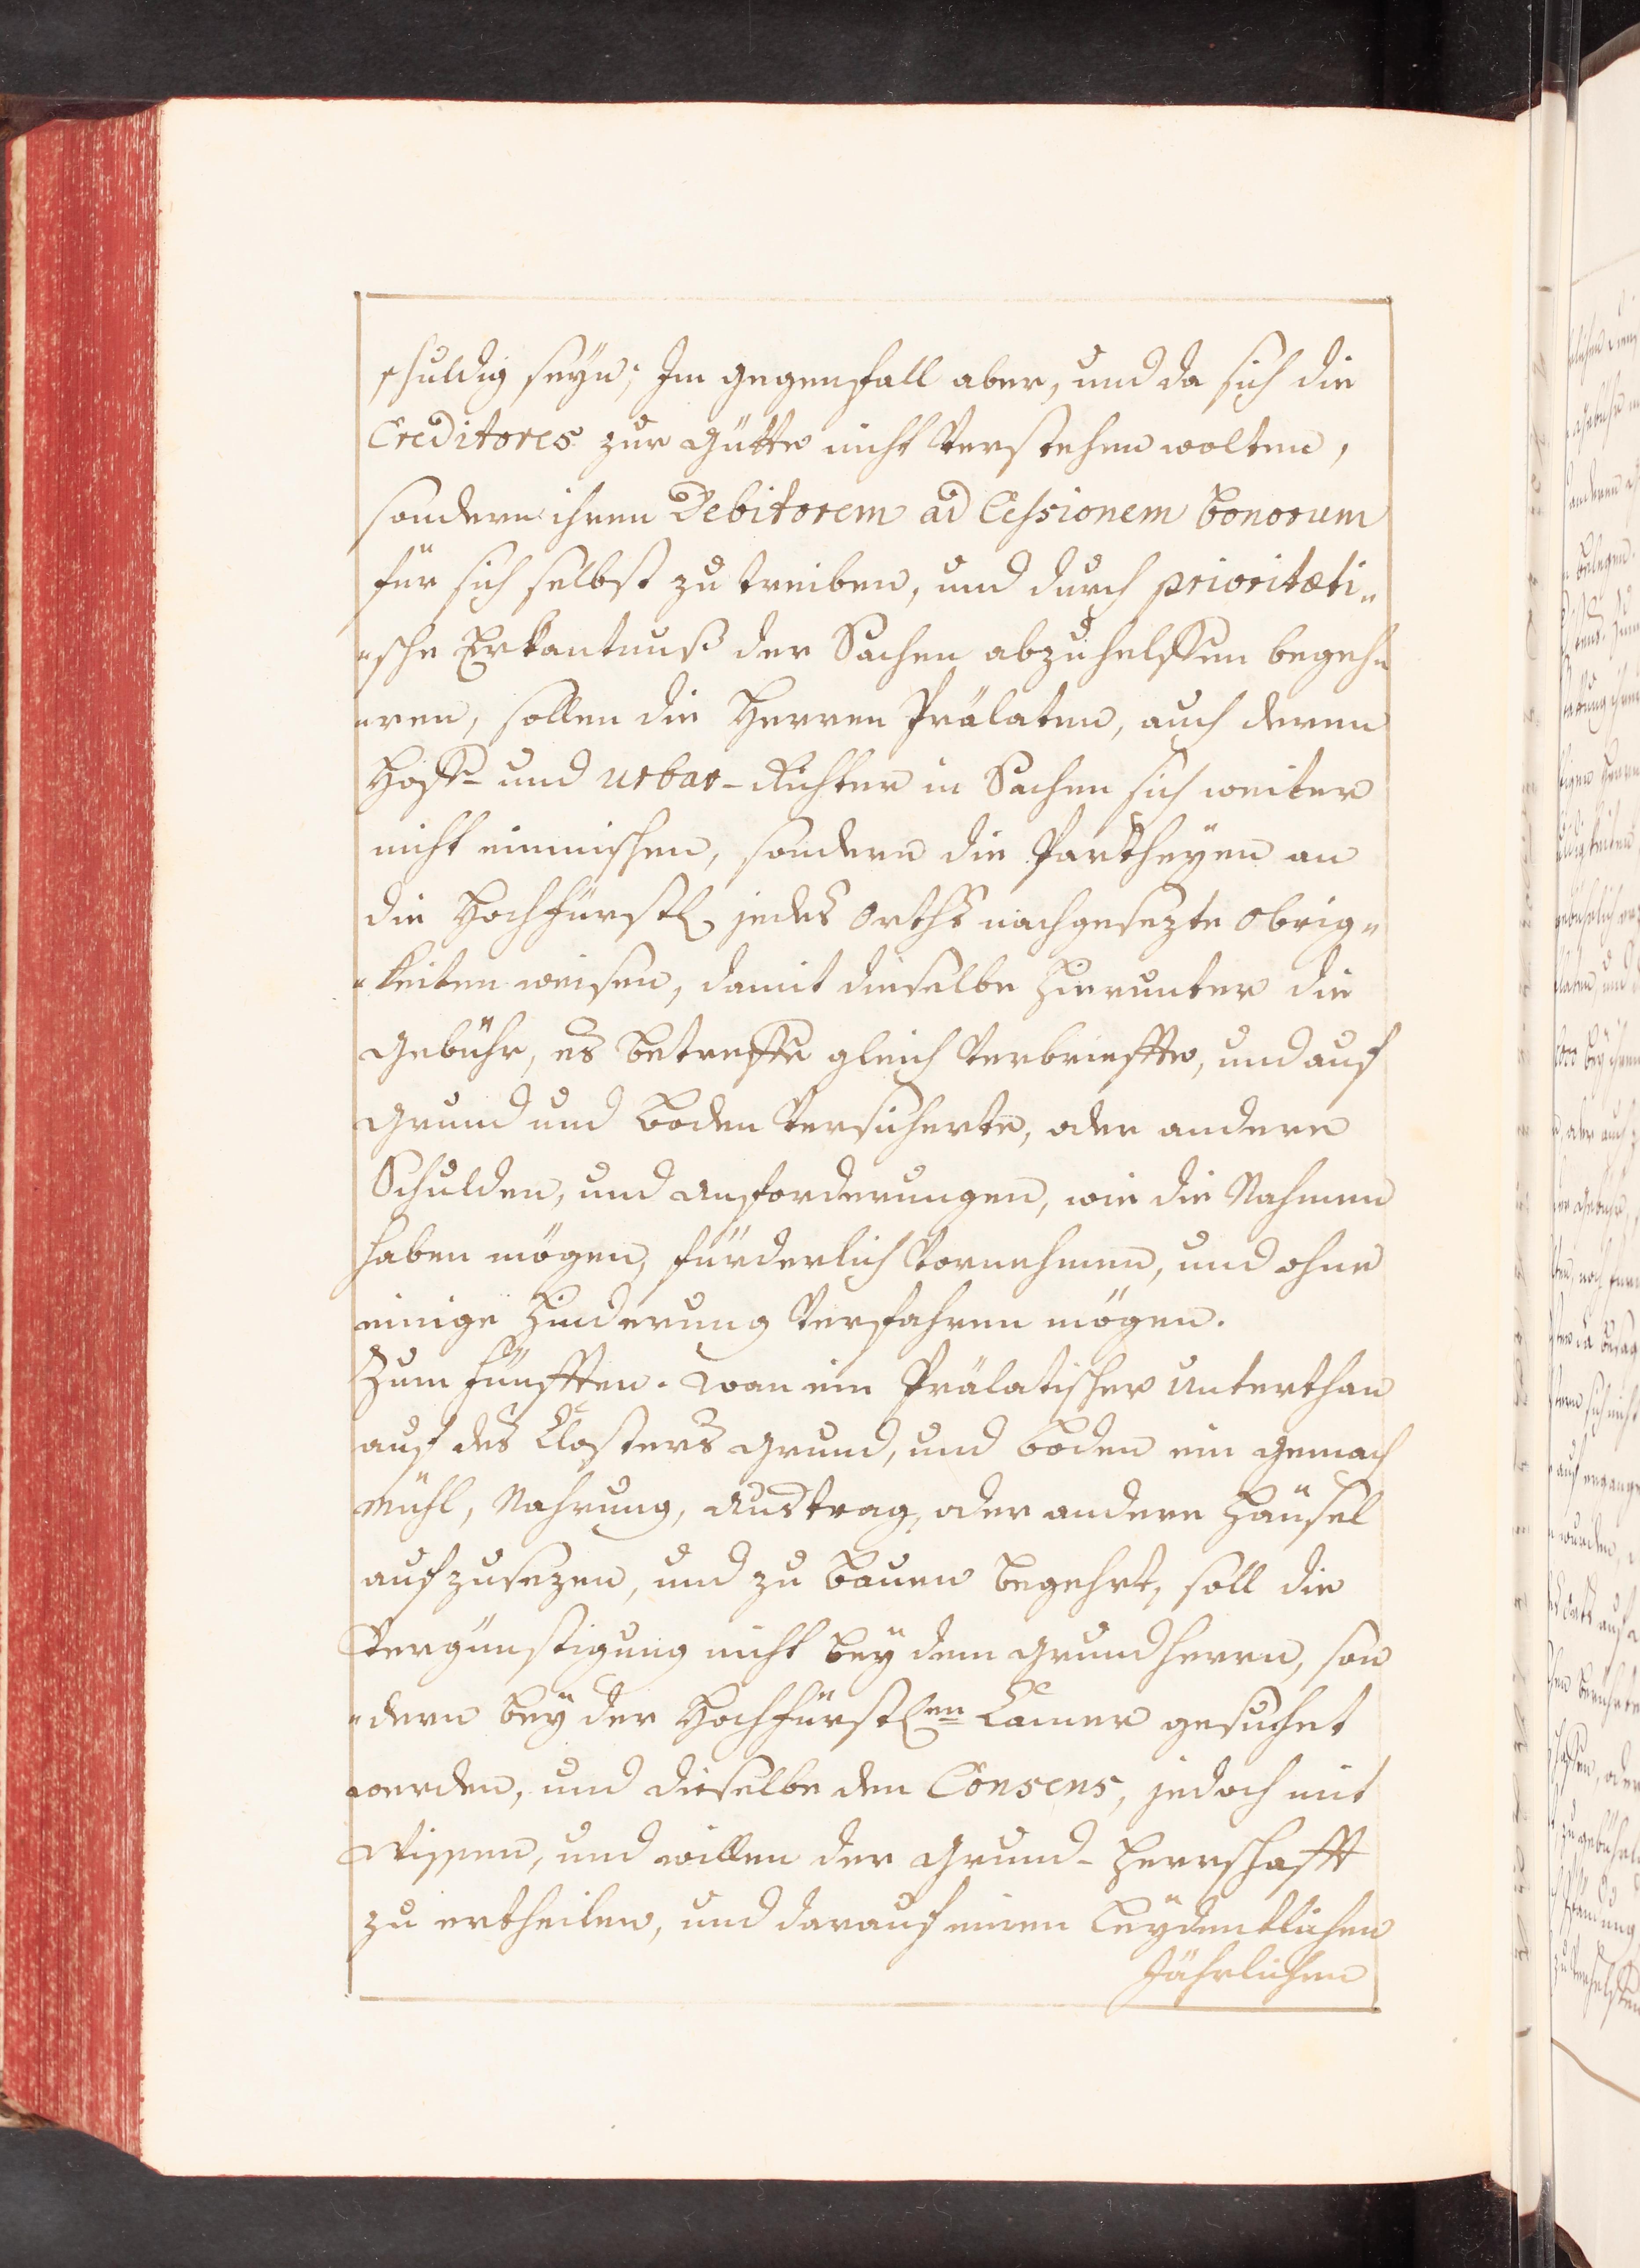 schuldig seÿn; Im gegensfall aber, und da sich die
Creditores zur Gütte nicht Verstehen wolten,
sondern ihren Debitorem ad Cessionem bonorum
für sich selbst zu treiben, und durch prioritæti„
„sche Erkantnuß der Sachen abzuhelffen begeh„
„ren, sollen die Herren Prälaten, auch deren
Hoff- und Urbar-Richter in Sachen sich weiter
nicht einmischen, sondern die Partheÿen an
die Hochfürstl. jedes Orths nachgesezte Obrig„
„keiten weisen, damit dieselbe hierunter die
Gebühr, es betreffe gleich Verbrieffte, und auf
Grund und Boden Versicherte, oder andere
Schulden, und Anforderungen, wie die Nahmen
haben mögen, fürderlich Vornehmen, und ohne
einige Hinderung Verfahren mögen.
Zum Fünfften. Wan ein Prälatischer Unterthan
auf des Closters Grund, und Boden ein Gemach
Mühl, Nahrung, Austrag, oder andere Häusel
aufzusezen, und zu bauen begehrt, soll die
Vergünstigung nicht beÿ dem Grundherrn, son
„dern beÿ der Hochfürstl.en Camer gesuchet
werden, und dieselbe den Consens, jedoch mit
Wissen, und willen der Grund-Herrschafft
zu ertheilen, und darauf einen leÿdentlichen
Jährlichen